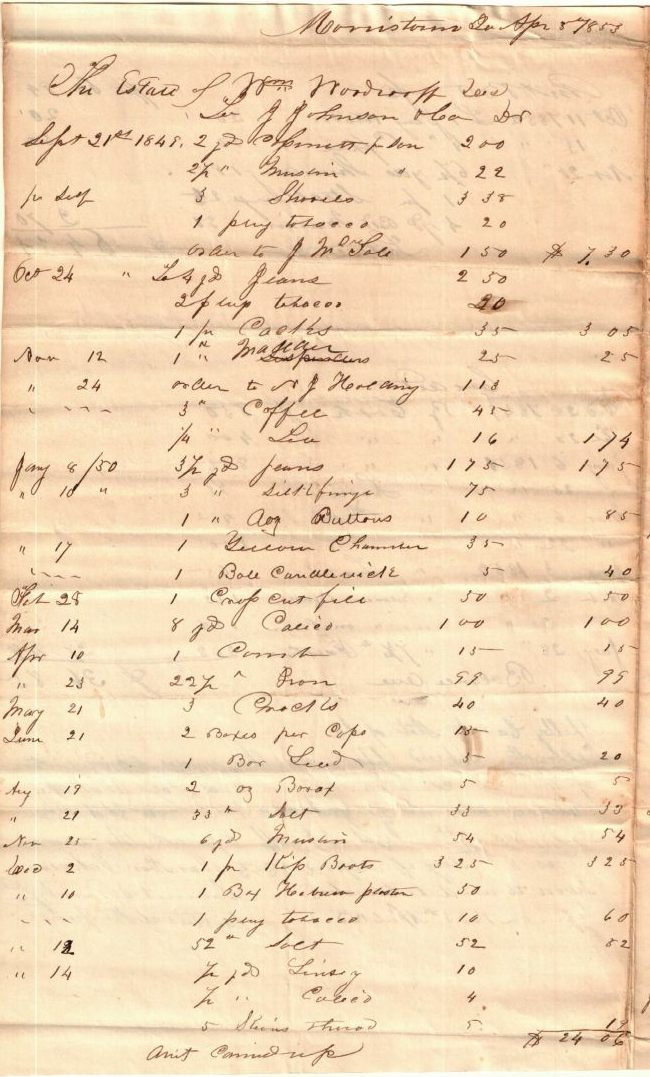 Morristown Apr 8 1853
The Estate of Wm Woodrooff Decd
To J Johnson & Co Dr
Sept 21st 1849. 2 yd 200
2½ " Muslin " 22
pr self 3 Shovels 3 38
1 plug tobacco 20
order to J McTole 1 50 $ 7.30
Oct 24 " To 4 yd Jeans 2 50
2 plug tobacco 20
1 pr Cacks 35 3 05
Nov 12 1 " Madder 25 25
" 24 order to N J Holding 113
" - - - 3 " Coffee 45
¼ " Tea 16 174
Jany 8/50 3½ yd jeans 175 175
" 10 " 3 " silk fringe 75
1 " Doz Buttons 10 85
" 17 1 Yellow Chamber 35
" - - - 1 Ball Candlewick 5 40
Feb 28 1 Cross cut file 50 50
Mar 14 8 yd Calico 100 100
Apr 10 1 Comb 15 15
" 23 22½ " Iron 99 99
May 21 3 Crocks 40 40
June 21 2 Boxes per Caps 15
1 Bar Lead 5 20
Aug 19 2 oz Borax 5 5
" 29 33 " Salt 33 33
Nov 25 6 yd Muslin 54 54
Dec 2 1 pr Kip Boots 3 25 3 25
" 10 1 Box Hebrew plaster 50
- - - 1 plug tobacco 10 60
" 12 52 " Salt 52 52
" 14 ½ yd Linsey 10
½ " Calico 4
5 Skins thread 5 19
Amt Carried up $ 24 06